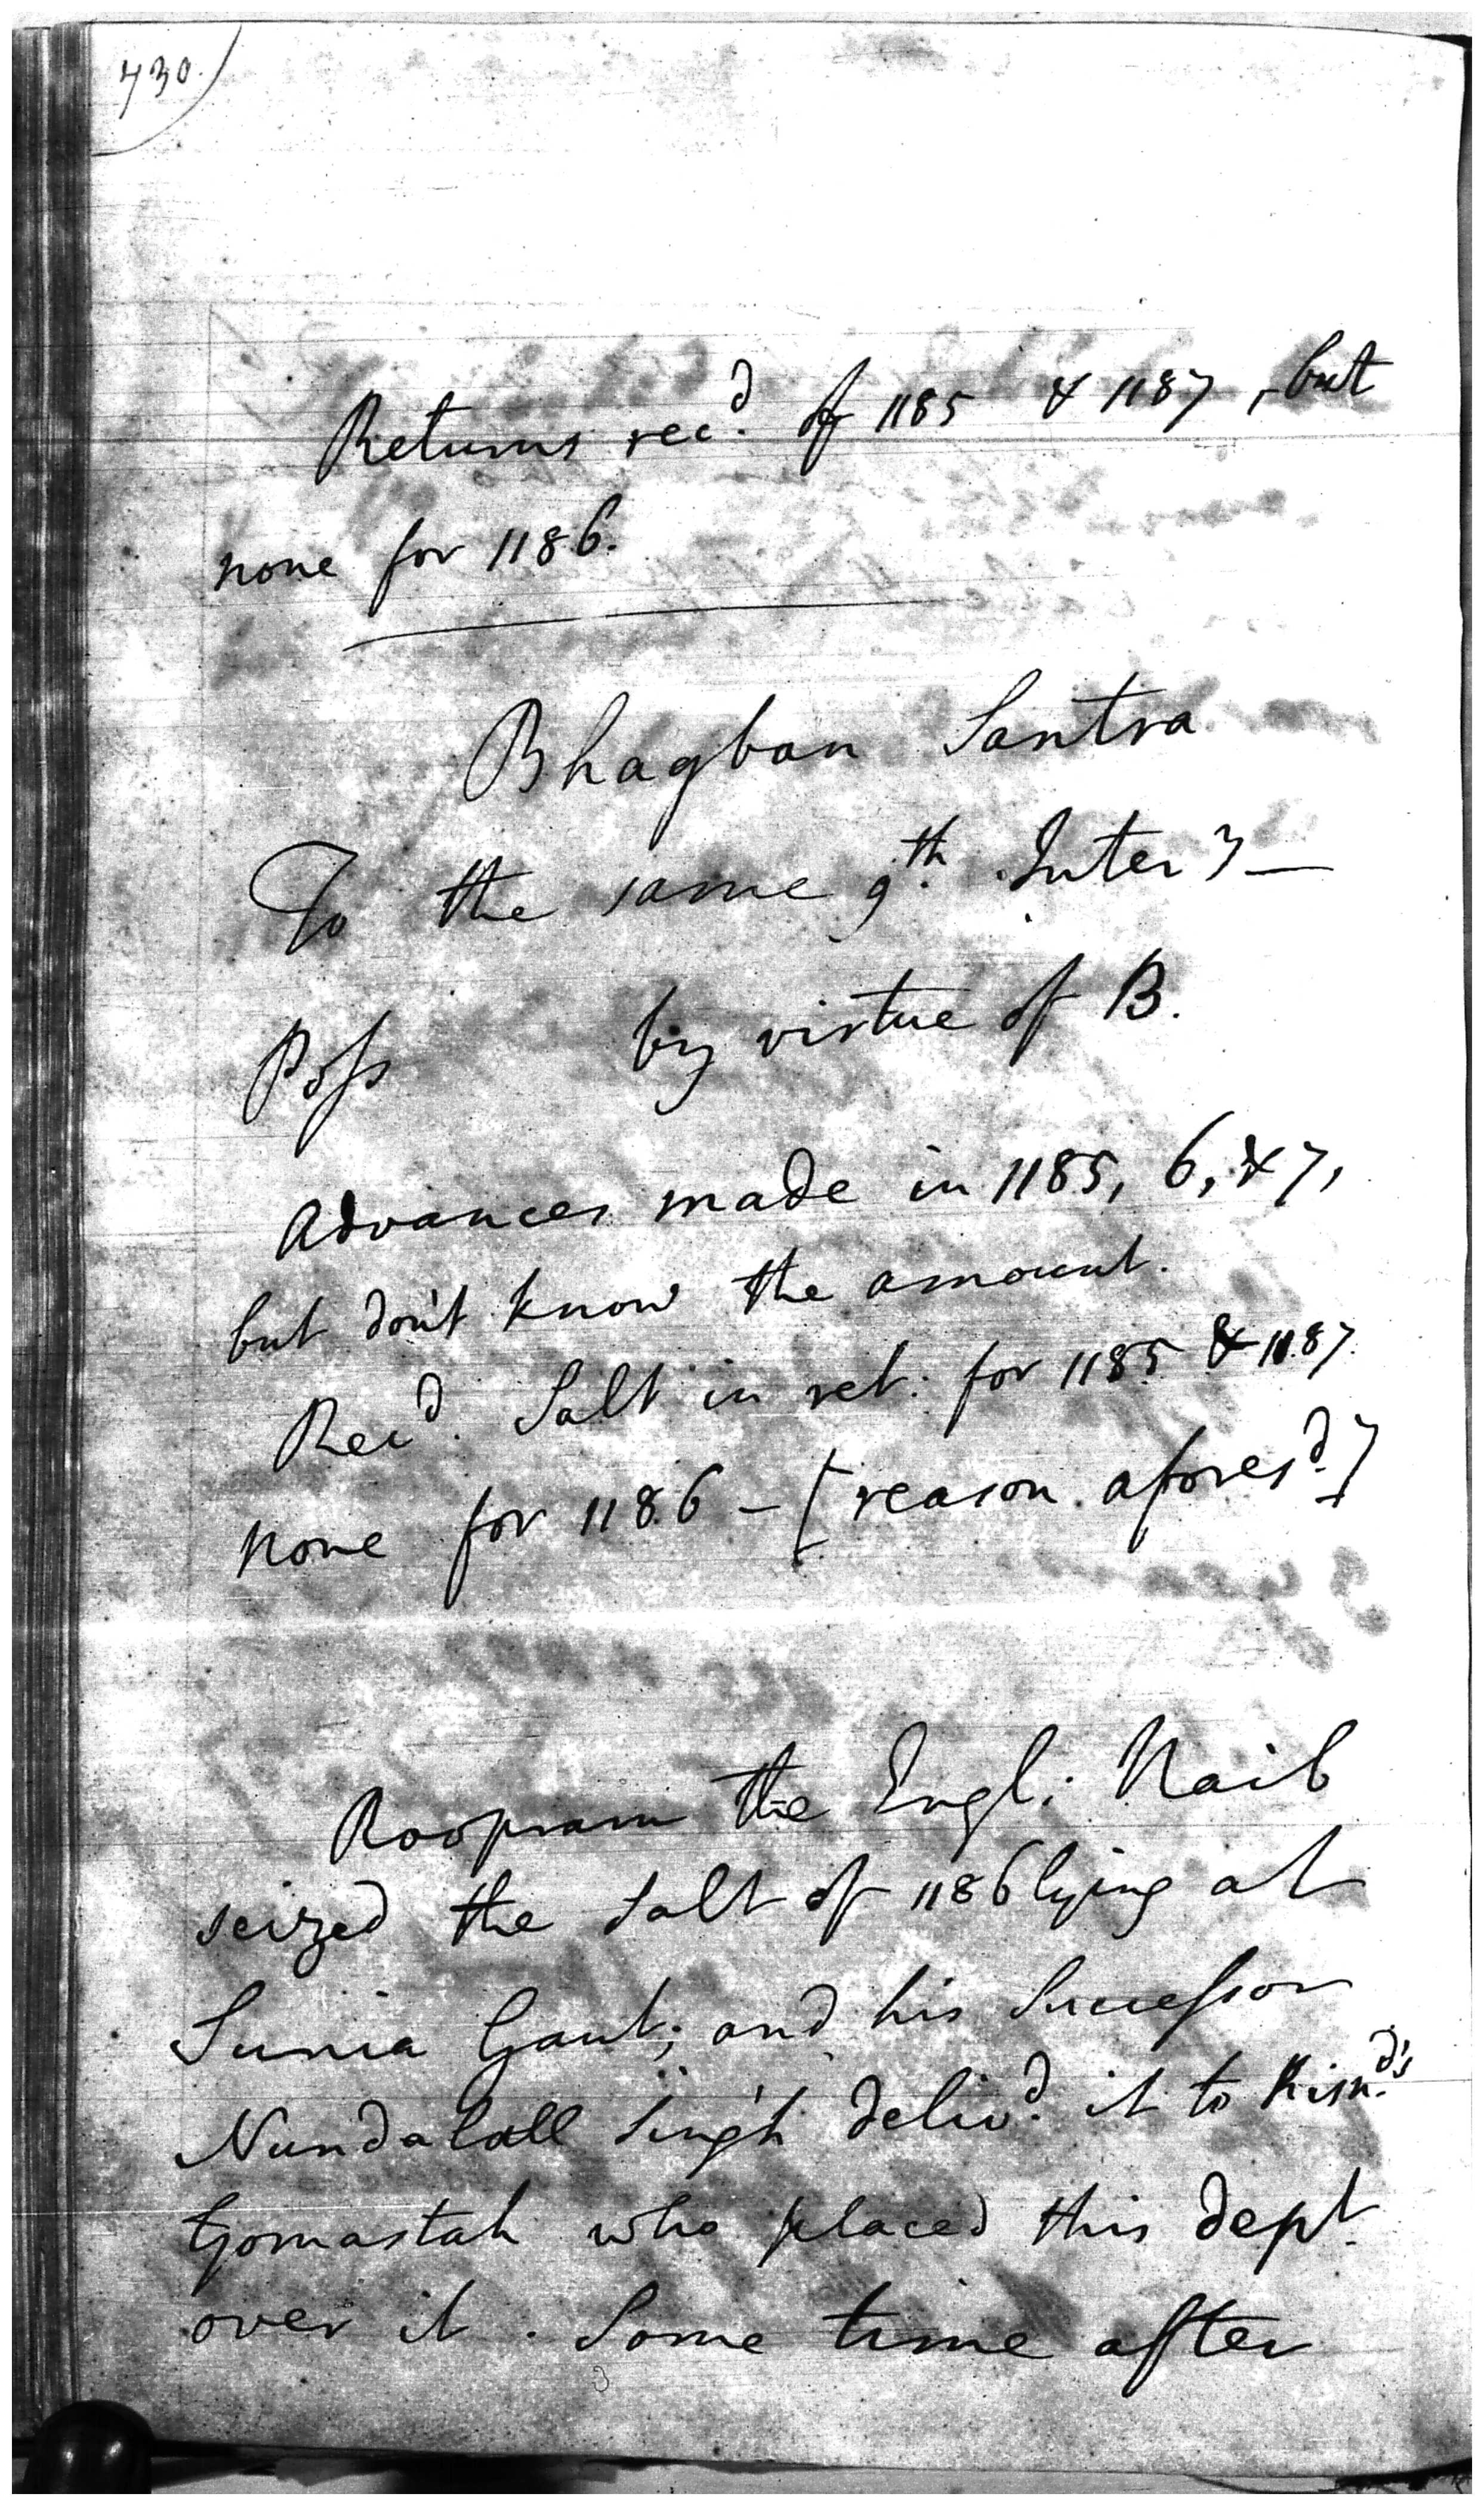 730.
Returns rec.d of 1185 & 1187, but
none for 1186.
Bhagban Santra
To the same 9.th Inter3 —
Poss by virtue of B.
Advances made in 1185, 6, & 7,
but don't know the amount.
Rec.d Salt in ret: for 1185 & 1187
none for 1186 — [reason afores.d]
Roopram the Engl: Naib
seized the Salt of 1186 lying at
Sunia Gaut; and his Successor
Nundalall Singh deliv.d it to Kisn.d's
Gomastah who placed this dep.t
over it. Some time after